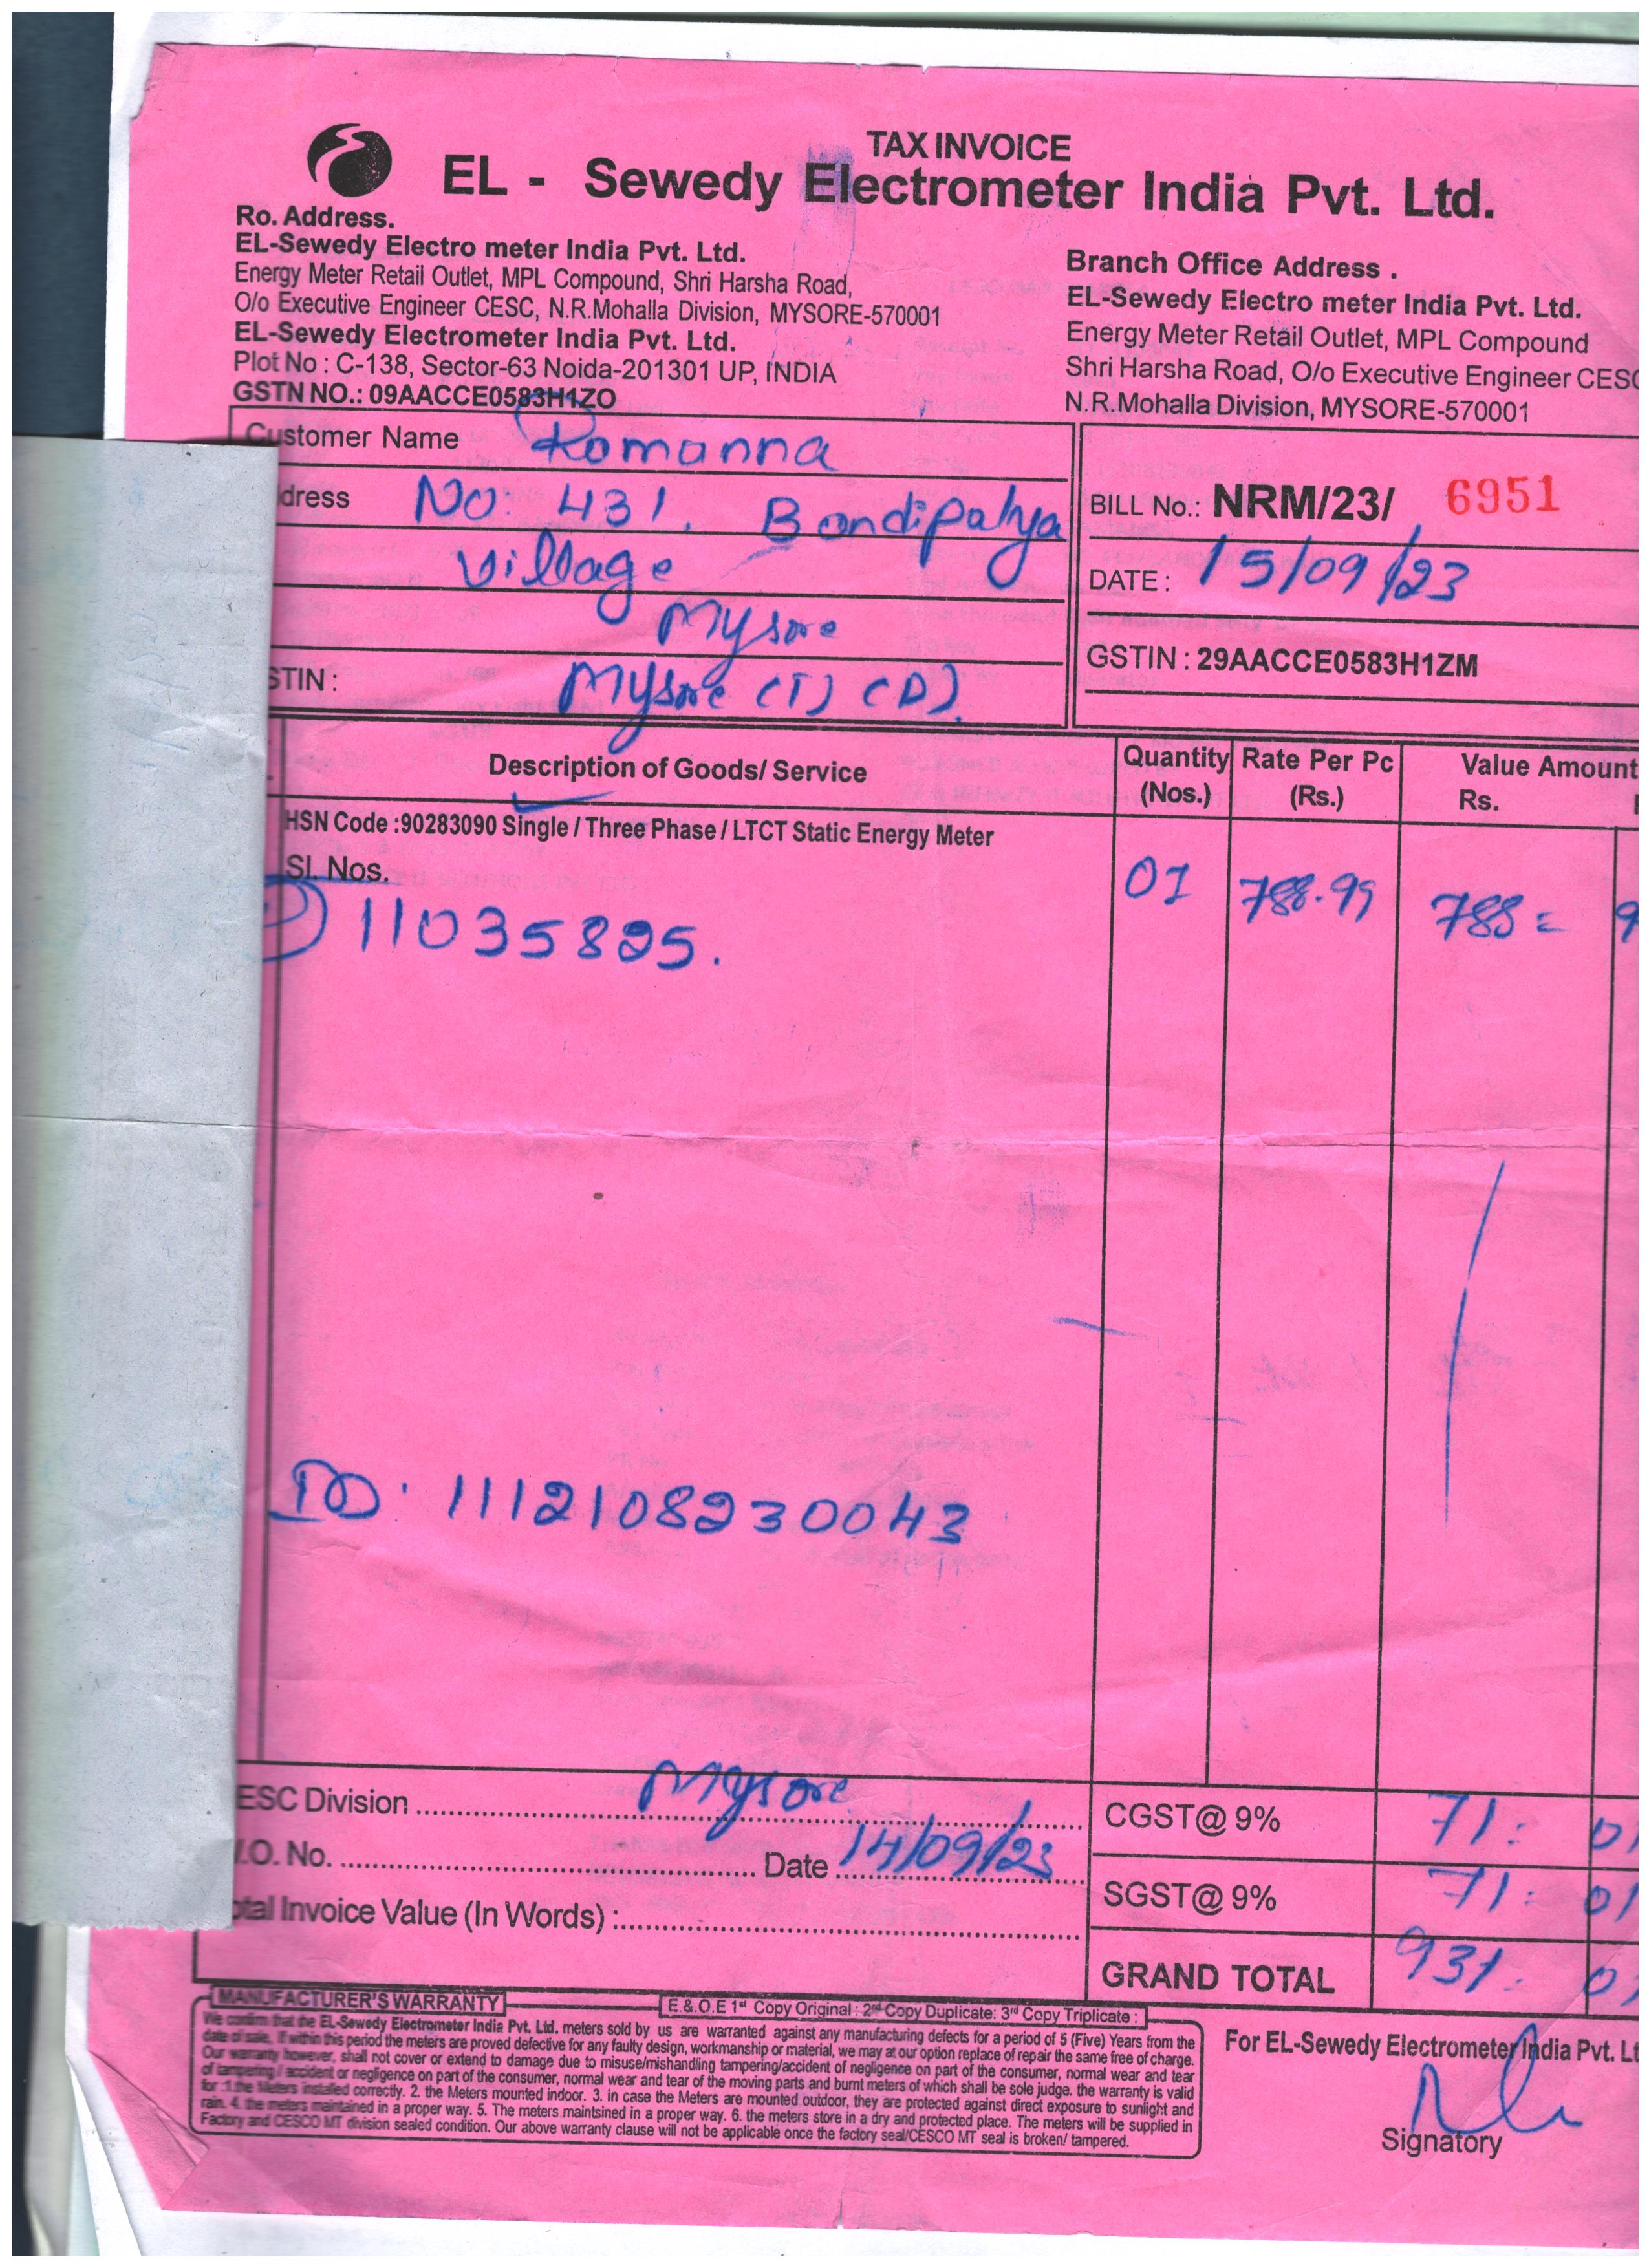 TAX INVOICE
EL - Sewedy Electrometer India Pvt. Ltd.
Ro. Address.
EL-Sewedy Electro meter India Pvt. Ltd.
Energy Meter Retail Outlet, MPL Compound, Shri Harsha Road,
O/o Executive Engineer CESC, N.R.Mohalla Division, MYSORE-570001
EL-Sewedy Electrometer India Pvt. Ltd.
Plot No : C-138, Sector-63 Noida-201301 UP, INDIA
GSTN NO.: 09AACCE0583H1ZO
Branch Office Address .
EL-Sewedy Electro meter India Pvt. Ltd.
Energy Meter Retail Outlet, MPL Compound
Shri Harsha Road, O/o Executive Engineer CESC
N.R.Mohalla Division, MYSORE-570001
Customer Name Romanna
dress No: 431, Bandipalya
Village
Mysore
STIN : Mysore (T) (D).
BILL No.: NRM/23/ 6951
DATE : 15/09/23
GSTIN : 29AACCE0583H1ZM
Description of Goods/ Service
Quantity (Nos.)
Rate Per Pc (Rs.)
Value Amount
Rs.
HSN Code :90283090 Single / Three Phase / LTCT Static Energy Meter
Sl. Nos.
11035825.
01 788.99 788= 9
ID: 1112108230043
ESC Division Mysore
.O. No. Date 14/09/23
tal Invoice Value (In Words) :
CGST@ 9% 71: 01
SGST@ 9% 71: 01
GRAND TOTAL 931: 01
MANUFACTURER'S WARRANTY
E.&.O.E 1st Copy Original : 2nd Copy Duplicate: 3rd Copy Triplicate :
We confirm that the EL-Sewedy Electrometer India Pvt. Ltd. meters sold by us are warranted against any manufacturing defects for a period of 5 (Five) Years from the
date of sale, if within this period the meters are proved defective for any faulty design, workmanship or material, we may at our option replace of repair the same free of charge.
Our warranty however, shall not cover or extend to damage due to misuse/mishandling tampering/accident of negligence on part of the consumer, normal wear and tear
of tampering / accident or negligence on part of the consumer, normal wear and tear of the moving parts and burnt meters of which shall be sole judge. the warranty is valid
for :1.the Meters installed correctly. 2. the Meters mounted indoor. 3. in case the Meters are mounted outdoor, they are protected against direct exposure to sunlight and
rain. 4. the meters maintained in a proper way. 5. The meters maintsined in a proper way. 6. the meters store in a dry and protected place. The meters will be supplied in
Factory and CESCO MT division sealed condition. Our above warranty clause will not be applicable once the factory seal/CESCO MT seal is broken/ tampered.
For EL-Sewedy Electrometer India Pvt. Lt
Signatory